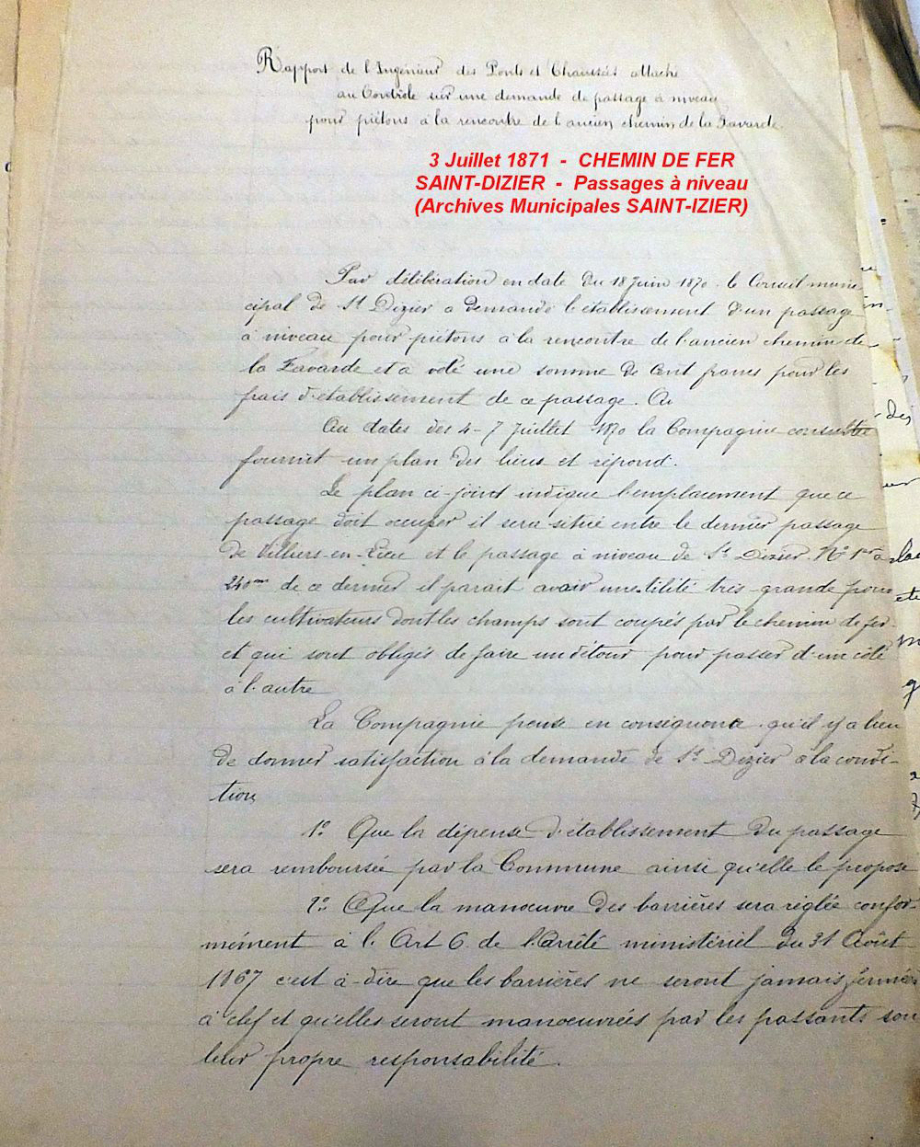 Rapport de l'Ingénieur des Ponts et Chaussées attaché
au Contrôle sur une demande de passage à niveau
pour piétons à la rencontre de l'ancien chemin de la Favarde.
3 Juillet 1871 - CHEMIN DE FER
SAINT-DIZIER - Passages à niveau
(Archives Municipales SAINT-IZIER)
Par délibération en date du 18 juin 1870 le Conseil muni-
cipal de St Dizier a demandé l'établissement d'un passage
à niveau pour piétons à la rencontre de l'ancien chemin de
la Favarde et a voté une somme de Cent francs pour les
frais d'établissement de ce passage. Ou
Au dates des 4-7 Juillet 1870 la Compagnie consultée
fournit un plan des lieux et répond.
Le plan ci-joint indique l'emplacement que ce
passage doit occuper il sera situé entre le dernier passage
de Villiers-en-Lieu et le passage à niveau de St Dizier. No 1er à
240m de ce dernier il parait avoir une utilité très grande pour
les cultivateurs dont les champs sont coupés par le chemin de fer
et qui sont obligés de faire un détour pour passer d'un côté
à l'autre
La Compagnie pense en conséquence qu'il y a lieu
de donner satisfaction à la demande de St Dizier à la condi-
tion
1o Que la dépense d'établissement du passage
sera remboursée par la Commune ainsi qu'elle le propose
2o Que la manœuvre des barrières sera réglée confor-
mément à l'Art 6 de l'arrêté ministériel du 31 Août
1867 c'est à-dire que les barrières ne seront jamais fermées
à clef et qu'elles seront manoeuvrées par les passants sou
leur propre responsabilité.